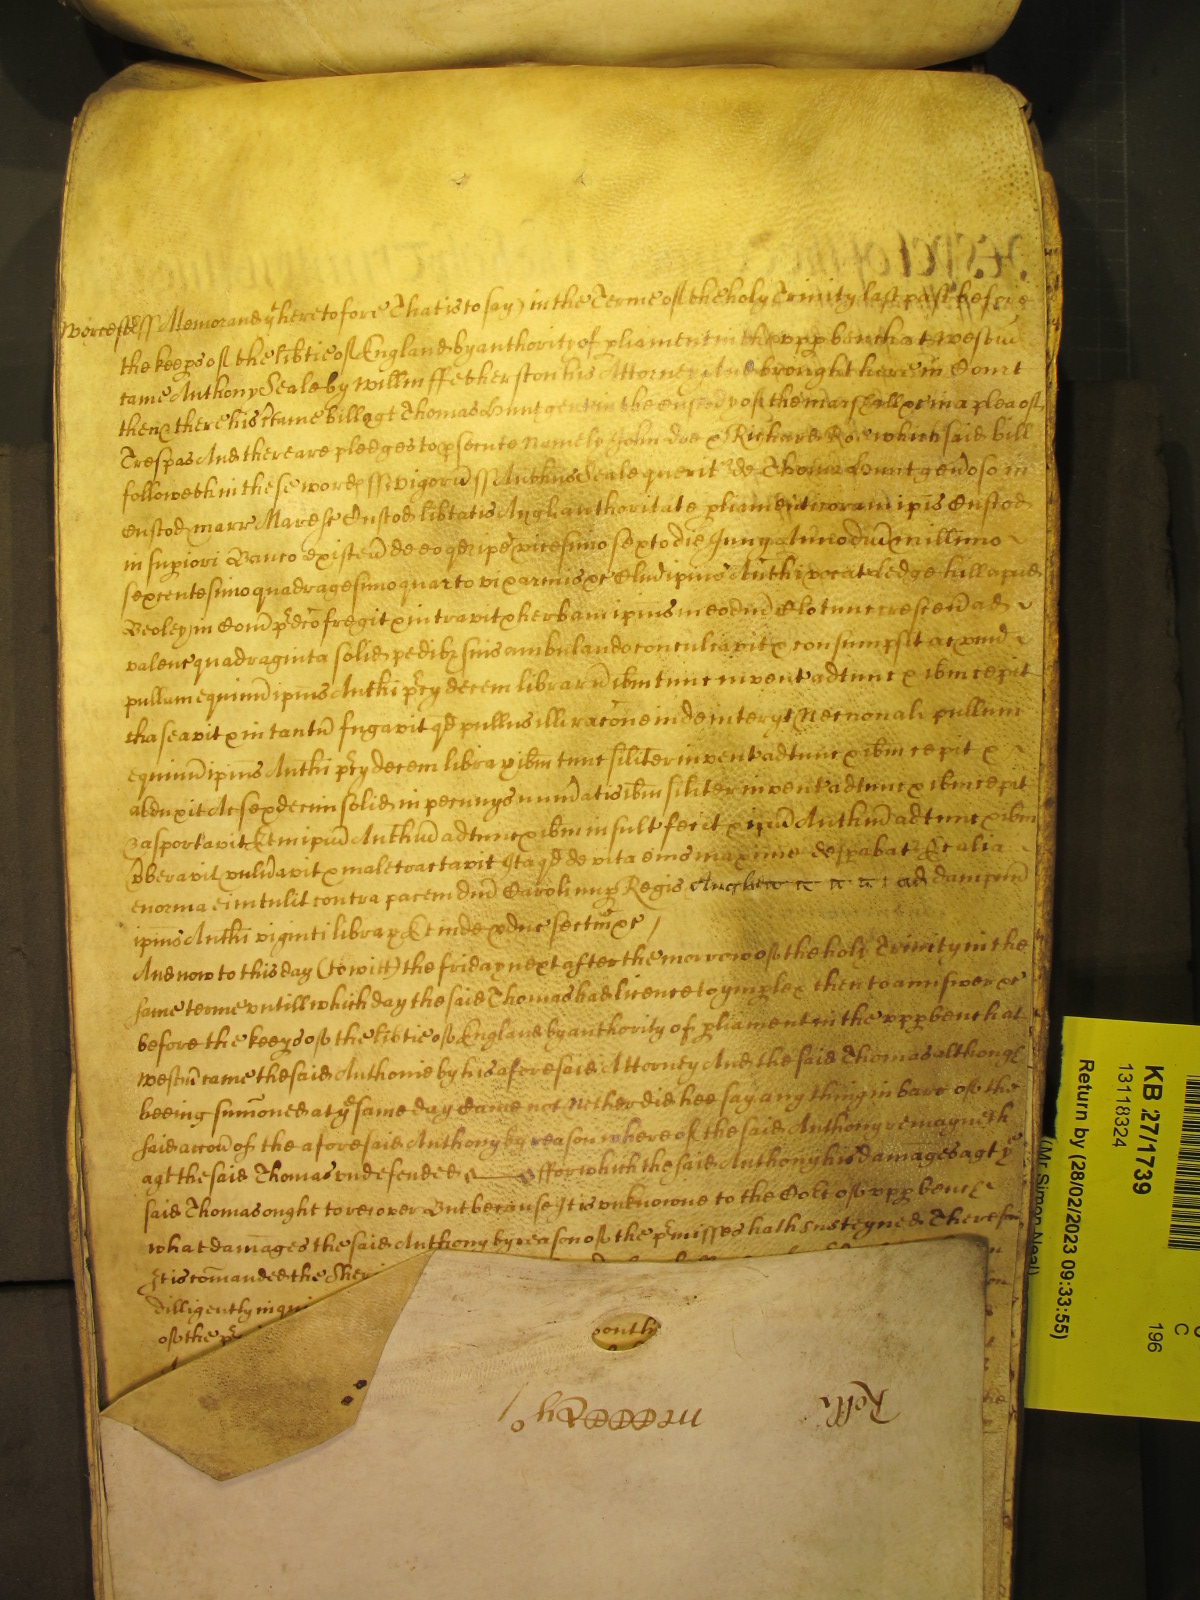 Worcester ss Memorand yt heretofore That is to say) in the Terme of the holy Trinity last past before
the keeps of the libtie of England by authority of pliament in the upp bench at westm
came Anthony Seale by Willm ffetherston his Attorney And brought here in Court
then & there his ctaine bill agt Thomas Hunt gent in the custody of the marshall &c in a plea of
Trespas And there are pledges to psecute Namely John doe & Richard Roe which said bill
followeth in these words ss wigorn ss Anthus Seale querit de Thoma Hunt genoso in
Custod marr Maresc Custod libtatis Angl authoritate pliamenti coram ipis Custod
in supiori Banco existen de eo qd ipe vicesimo sexto die Junij Anno dni millimo
sexcentesimo quadragesimo quarto vi & armis &c Clm ipius Anthi vocat ledge hill apud
Beoley in Com pdco fregit & intravit & herbam ipius in eodm Clo tunc crescen ad
valenc quadraginta solid pedibz suis ambulando conculcavit & consumpsit ac und
pullum equinu ipius Anthi pcij decem librarn ibm tunc invent adtunc & ibm cepit
chaseavit & in tantu fugavit qd pullus ille racone inde interyt Necnon al pullum
equinu ipius Anthi pcij decem librar ibm tunc siliter invent adtunc & ibm cepit &
abduxit Ac sexdecim solid in pecunijs numatis ibm siliter invent adtunc & ibm cepit
& asportavit Et in ipum Anthum adtunc & ibm insult fecit & ipum Anthum adtunc & ibm
vberavit vulnavit & maletractavit Ita qd de vita eius maxime despabat Et alia
enorma ei intulit contra pacem dni Caroli nup Regis ad dampnu
ipius Anthi viginti librar Et inde pduc sectm &c /
And now to this day (to witt) the friday next after the morrow of the holy Trinity in the
same terme untill which day the said Thomas had licence to ymplex then to answer &c
before the keeps of the libtie of England by authority of pliament in the upp bench at
westm came the said Anthonie by his aforesaid Attorney And the said Thomas although
beeing sumoned at ye same day Came not Nether did hee say any thing in barr of the
said accon of the aforesaid Anthony by reason whereof the said Anthony remayneth
agt the said Thomas undefended ffor which the said Anthony his damages agt ye
said Thomas ought to recover But because It is unknowne to the Cort of upp bench
what damages the said Anthony by reason of the pmisses hath susteyned Therefore
It is comanded the Sher
dilligently inqui
of the p
ontly
Rolls
KB 27/1739
13118324
Return by (28/02/2023 09:33:55)
(Mr Simon Neal)
C
196